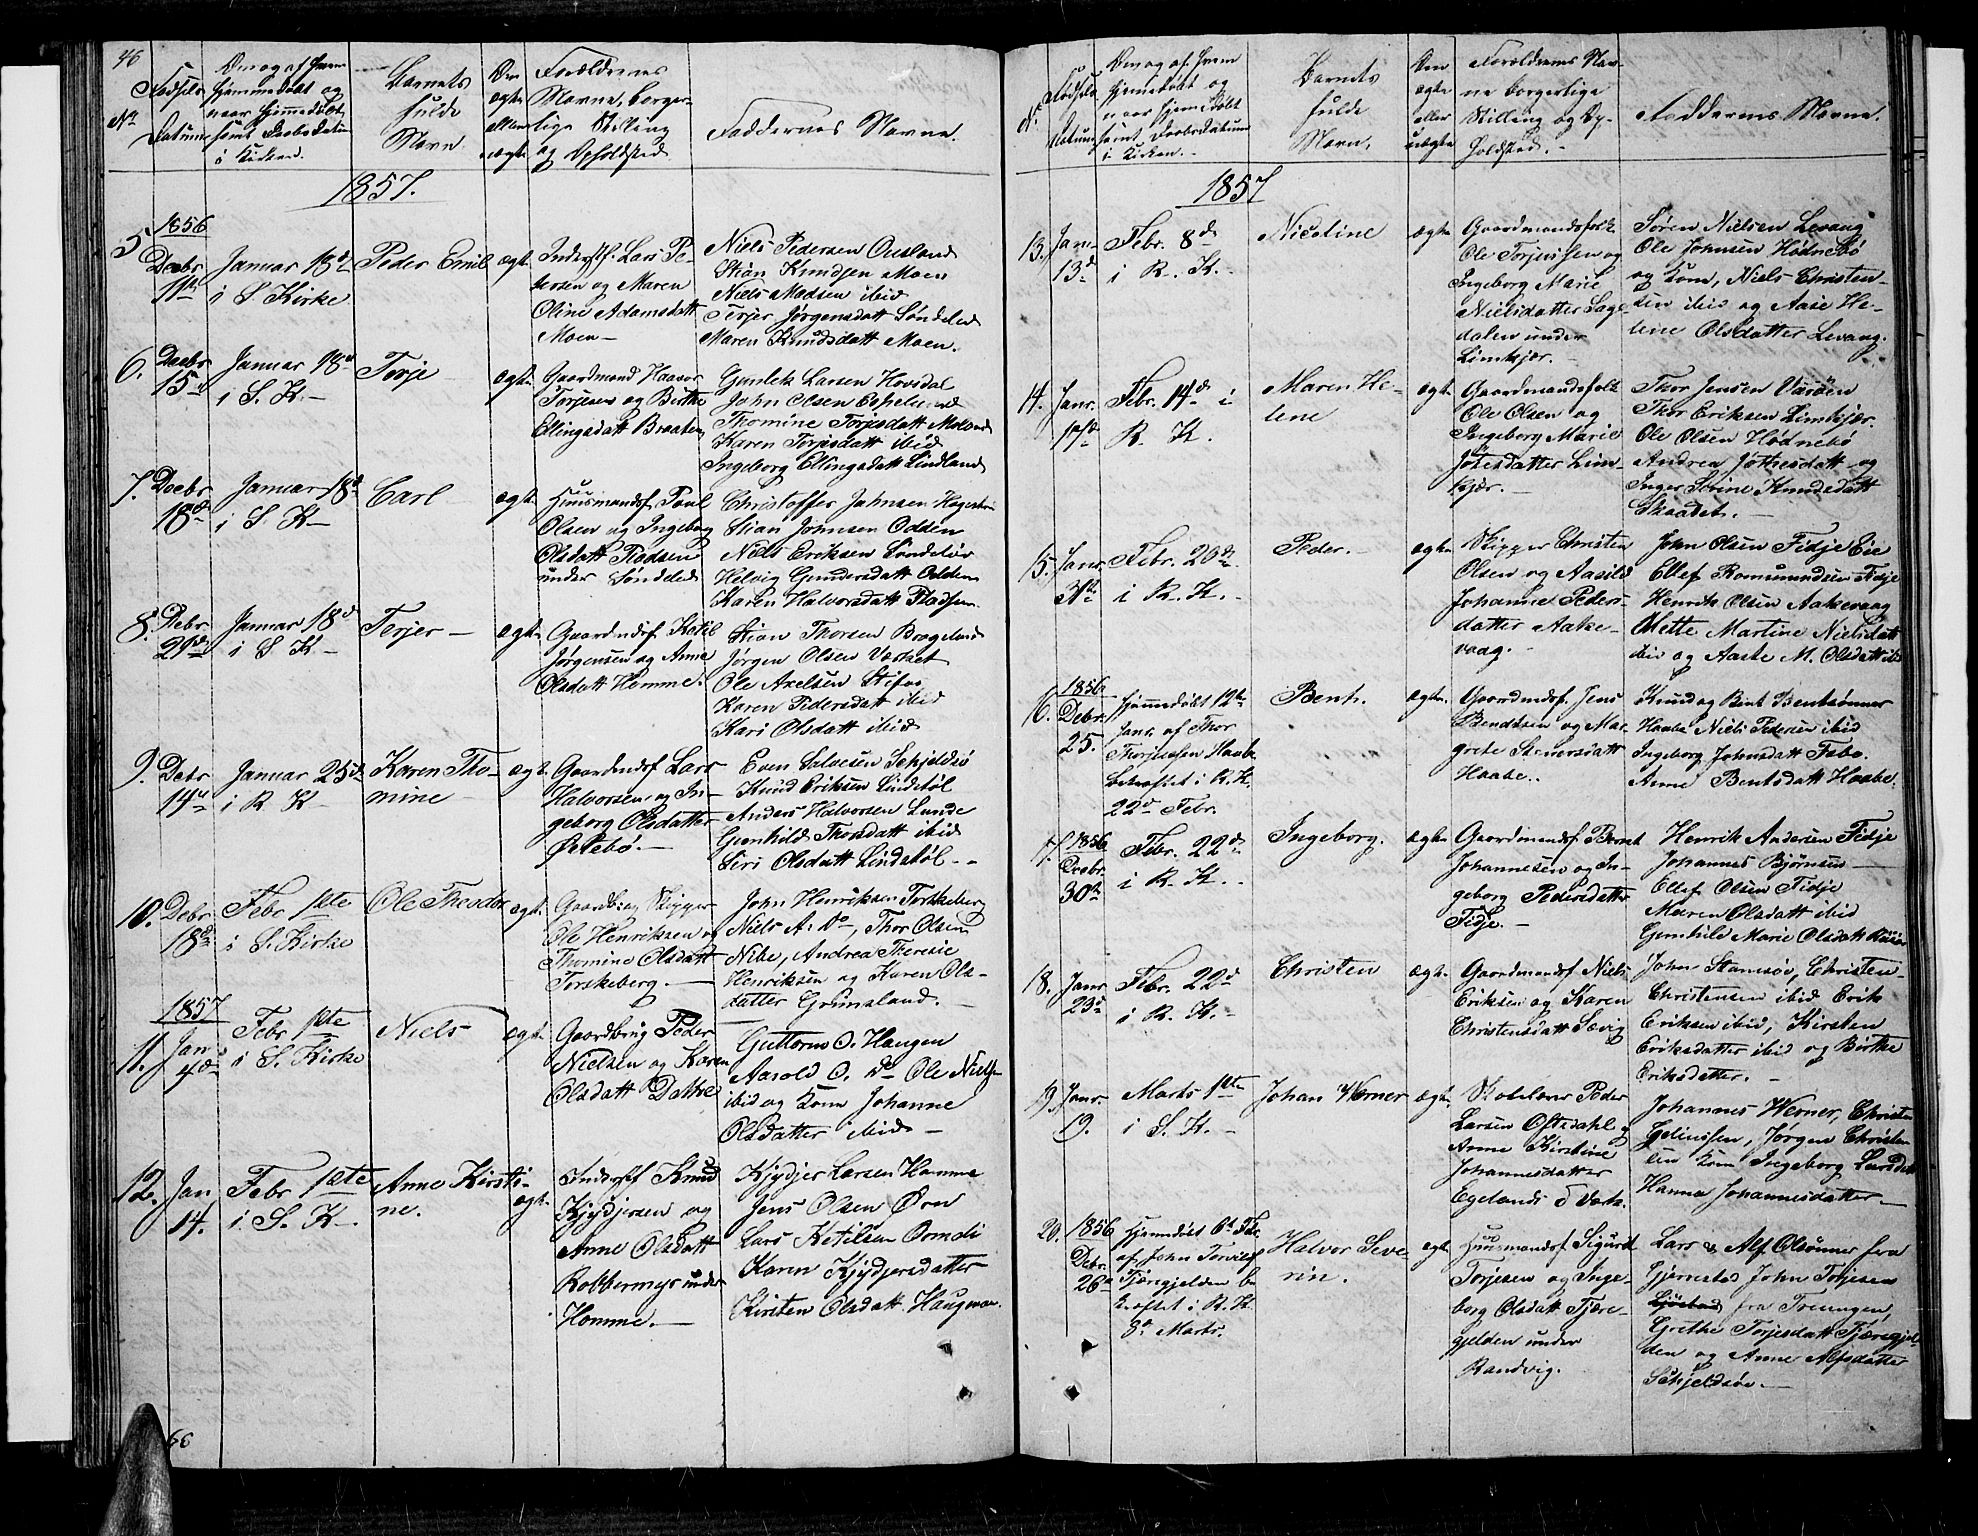 46
No
Fødsels
Datum
Om og af hvem
hjemmedøbt og
naar hjemmedøbt
samt Daabs Datum
i Kirken.
Barnets
fulde
Navn.
Om
ægte
eller
uægte
Forældrenes
Navne, borger-
lige Stilling
og Opholdsted.
Faddernes Navne.
1857.
5
1856
Decbr
11te
Januar 18de
i S. Kirke
Peder Emil
ægt.
Inderstf. Lars Pe-
dersen og Maren
Oline Adamsdatt
Moen
Niels Pedersen Ousland
Stian Knudsen Moen
Niels Madsen ibid
Terjer Jørgensdatt Søndeled
Maren Knudsdatt Moen.
6.
Decbr
15de
Januar 18de
i S. K.
Torje
ægt.
Gaardmand Haaver
Torjesen og Birthe
Ellingsdatt Braaten
Gunlek Larsen Hovdal
John Olsen Espelund
Thomine Torjisdatt Moland
Karen Torjisdatt ibid
Ingeborg Ellingsdatt Lindland
7.
Decbr
18de
Januar 18de
i S. K
Carl
ægt.
Huusmandsf. Poul
Olsen og Ingeborg
Olsdatt Pladsen
under Søndeled
Christoffer Jahnsen
Stian Johnsen Odden
Niels Eriksen Søndeled
Helvig Gundersdatt Odden
Karen Halvorsdatt Pladsen
8.
Debr
21de
Januar 18de
i S. K
Terjer
ægt.
Gaardmdsf. Ketil
Jørgensen og Anne
Olsdatt Homme.
Stian Thorsen
Jørgen Olsen Værket
Ole Axelsen Stifos
Karen Pedersdatt ibid
Kari Olsdatt ibid
9.
Debr
14de
Januar 25de
i R. K
Karen Tho-
mine
ægt.
Gaardmdsf. Lars
Halvorsen og In-
geborg Olsdatter
Østebø.
Even Salvesen Schjeldsø
Knud Eriksen Lindstøl
Anders Halvorsen Lunde
Gunhild Thorsdatt ibid
Siri Olsdatt Lindstøl
10.
Debr
18de
Febr 1ste
i S. Kirke
Ole Theodor
ægt.
Gaardb. og Skipper
Ole Henriksen og
Thomine Olsdatt
Torskeberg.
John Henriksen Torskeberg
Niels A. Do, Thor Olsen
Nibe, Andrea Theresie
Henriksen og Karen Ols-
datter Grumsland.
11.
1857
Jan
4de
Febr 1ste
i S. Kirke
Niels
ægt.
Gaardbrug Peder
Nielsen og Karen
Olsdatt
Guttorm O. Haugen
Aarold O. Do Ole Niels
ibid og Kone Johanne
Olsdatter ibid
12.
Jan
14.
Febr 1ste
i S. K.
Anne Kirsti-
ne.
ægt.
Inderstf Knud
Kjydjersen og
Anne Olsdatt
under
Homme.
Kjydjer Larsen Homme
Jens Olsen Øren
Lars Ketilsen
Karen Kjydjersdatter
Kirsten Olsdatt Haugmoen.
66
No
Fødsels
Datum
Om og af hvem
hjemmedøbt og
naar hjemmedøbt
samt Daabs Datum
i Kirken.
Barnets
fulde
Navn.
Om
ægte
eller
uægte
Forældrenes Nav-
ne borgerlige
Stilling og Op-
holdsted.
Faddernes Navne.
1857
13.
Jan.
13de
Febr. 8de
i R. K.
Nicoline
ægte
Gaardmandsfolk
Ole Torjussen og
Ingeborg Marie
Nielsdatter Lage-
dalen under
Limkjær.
Søren Nielsen Levang
Ole Johnsen Hødnebø
og Kone, Niels Christen-
sen ibid og Aase He-
lene Olsdatter Levang.
14.
Janr.
17de
Febr. 14de i
R. K.
Maren He-
lene
ægt.
Gaardmandsfolk
Ole Olsen og
Ingeborg Marie
Jøtesdatter Lim-
kjær.
Thor Jensen Vasøen
Thor Eriksen Limkjær.
Ole Olsen Hødnebø
Andrea Jøthesdatt og
Inger Serine Knudsdatt
Skaadet.
15.
Janr
31te
Febr. 20de
i R. K.
Peder.
ægte
Skipper Christen
Olsen og Aasild
Johanne Peders-
datter Aake-
vaag.
John Olsen Fidje Eie
Ellef Romundsen Fidje
Henrik Olsen Aakevaag
Mette Martine Nielsdatt
ibid og Aaste M. Olsdatt ibid
16.
1856
Debr.
25.
Hjemmedøbt 12te
Janr. af Thor
Thorjussen Haabe
bekræftet i R. K.
22de Febr.
Bent.
ægte.
Gaardmdsf. Jens
Bendtsen og Mar-
grete Steners datt
Haabe.
Knud og Bent Bentsønner
Haabe Niels Pedersen ibid
Ingeborg Johnsdatt Fobo.
Anne Bentsdatt Haabe.
17.
1856
Decbr.
30te
Febr. 22de
i R. K.
Ingeborg.
ægte
Gaardmandsf. Bernt
Johannesen og In-
geborg Pedersdatter
Fidje.
Henrik Andersen Fidje
Johannes Bjørnsen
Ellef Olsen Fidje
Maren Olsdatt ibid
Gunhild Marie Olsdatt Risør
18.
Janr.
23de
Febr. 22de
i R. K.
Christen
ægt.
Gaardmandsf. Niels
Eriksen og Karen
Christensdatt Sævig
John Stamsøe, Christen
Christensen ibid Erik
Eriksen ibid, Kirsten
Eriksdatter ibid og Birthe
Eriksdatter.
19.
Janr.
19.
Marts 1ste
i S. K.
Johan Werner
ægt.
Skolelærer Peder
Larsen Ofstedahl og
Anne Kirstine
Johannesdatter
Egelands Værk.
Johannes Werner, Christen
Jørgen Christen
sen Kone Ingeborg Larsdatt
Hanna Johannesdatter
20.
1856
Debr.
26de
Hjemmdøbt 6te Febr.
af John
Tjæregjelden be-
kræftet i R. K.
8de Marts.
Halvor Seve-
rin.
ægt.
Huusmandsf Sigurd
Torjesen og Inge-
borg Olsdatt Tjære-
gjelden under
Randvig.
Lars og Alf Olsønner fra
Gjernstad, John Torjesen
fra Treungen,
Grethe Torjesdatt Tjæregjel-
den og Anne Alfsdatter
Schjeldsøe.